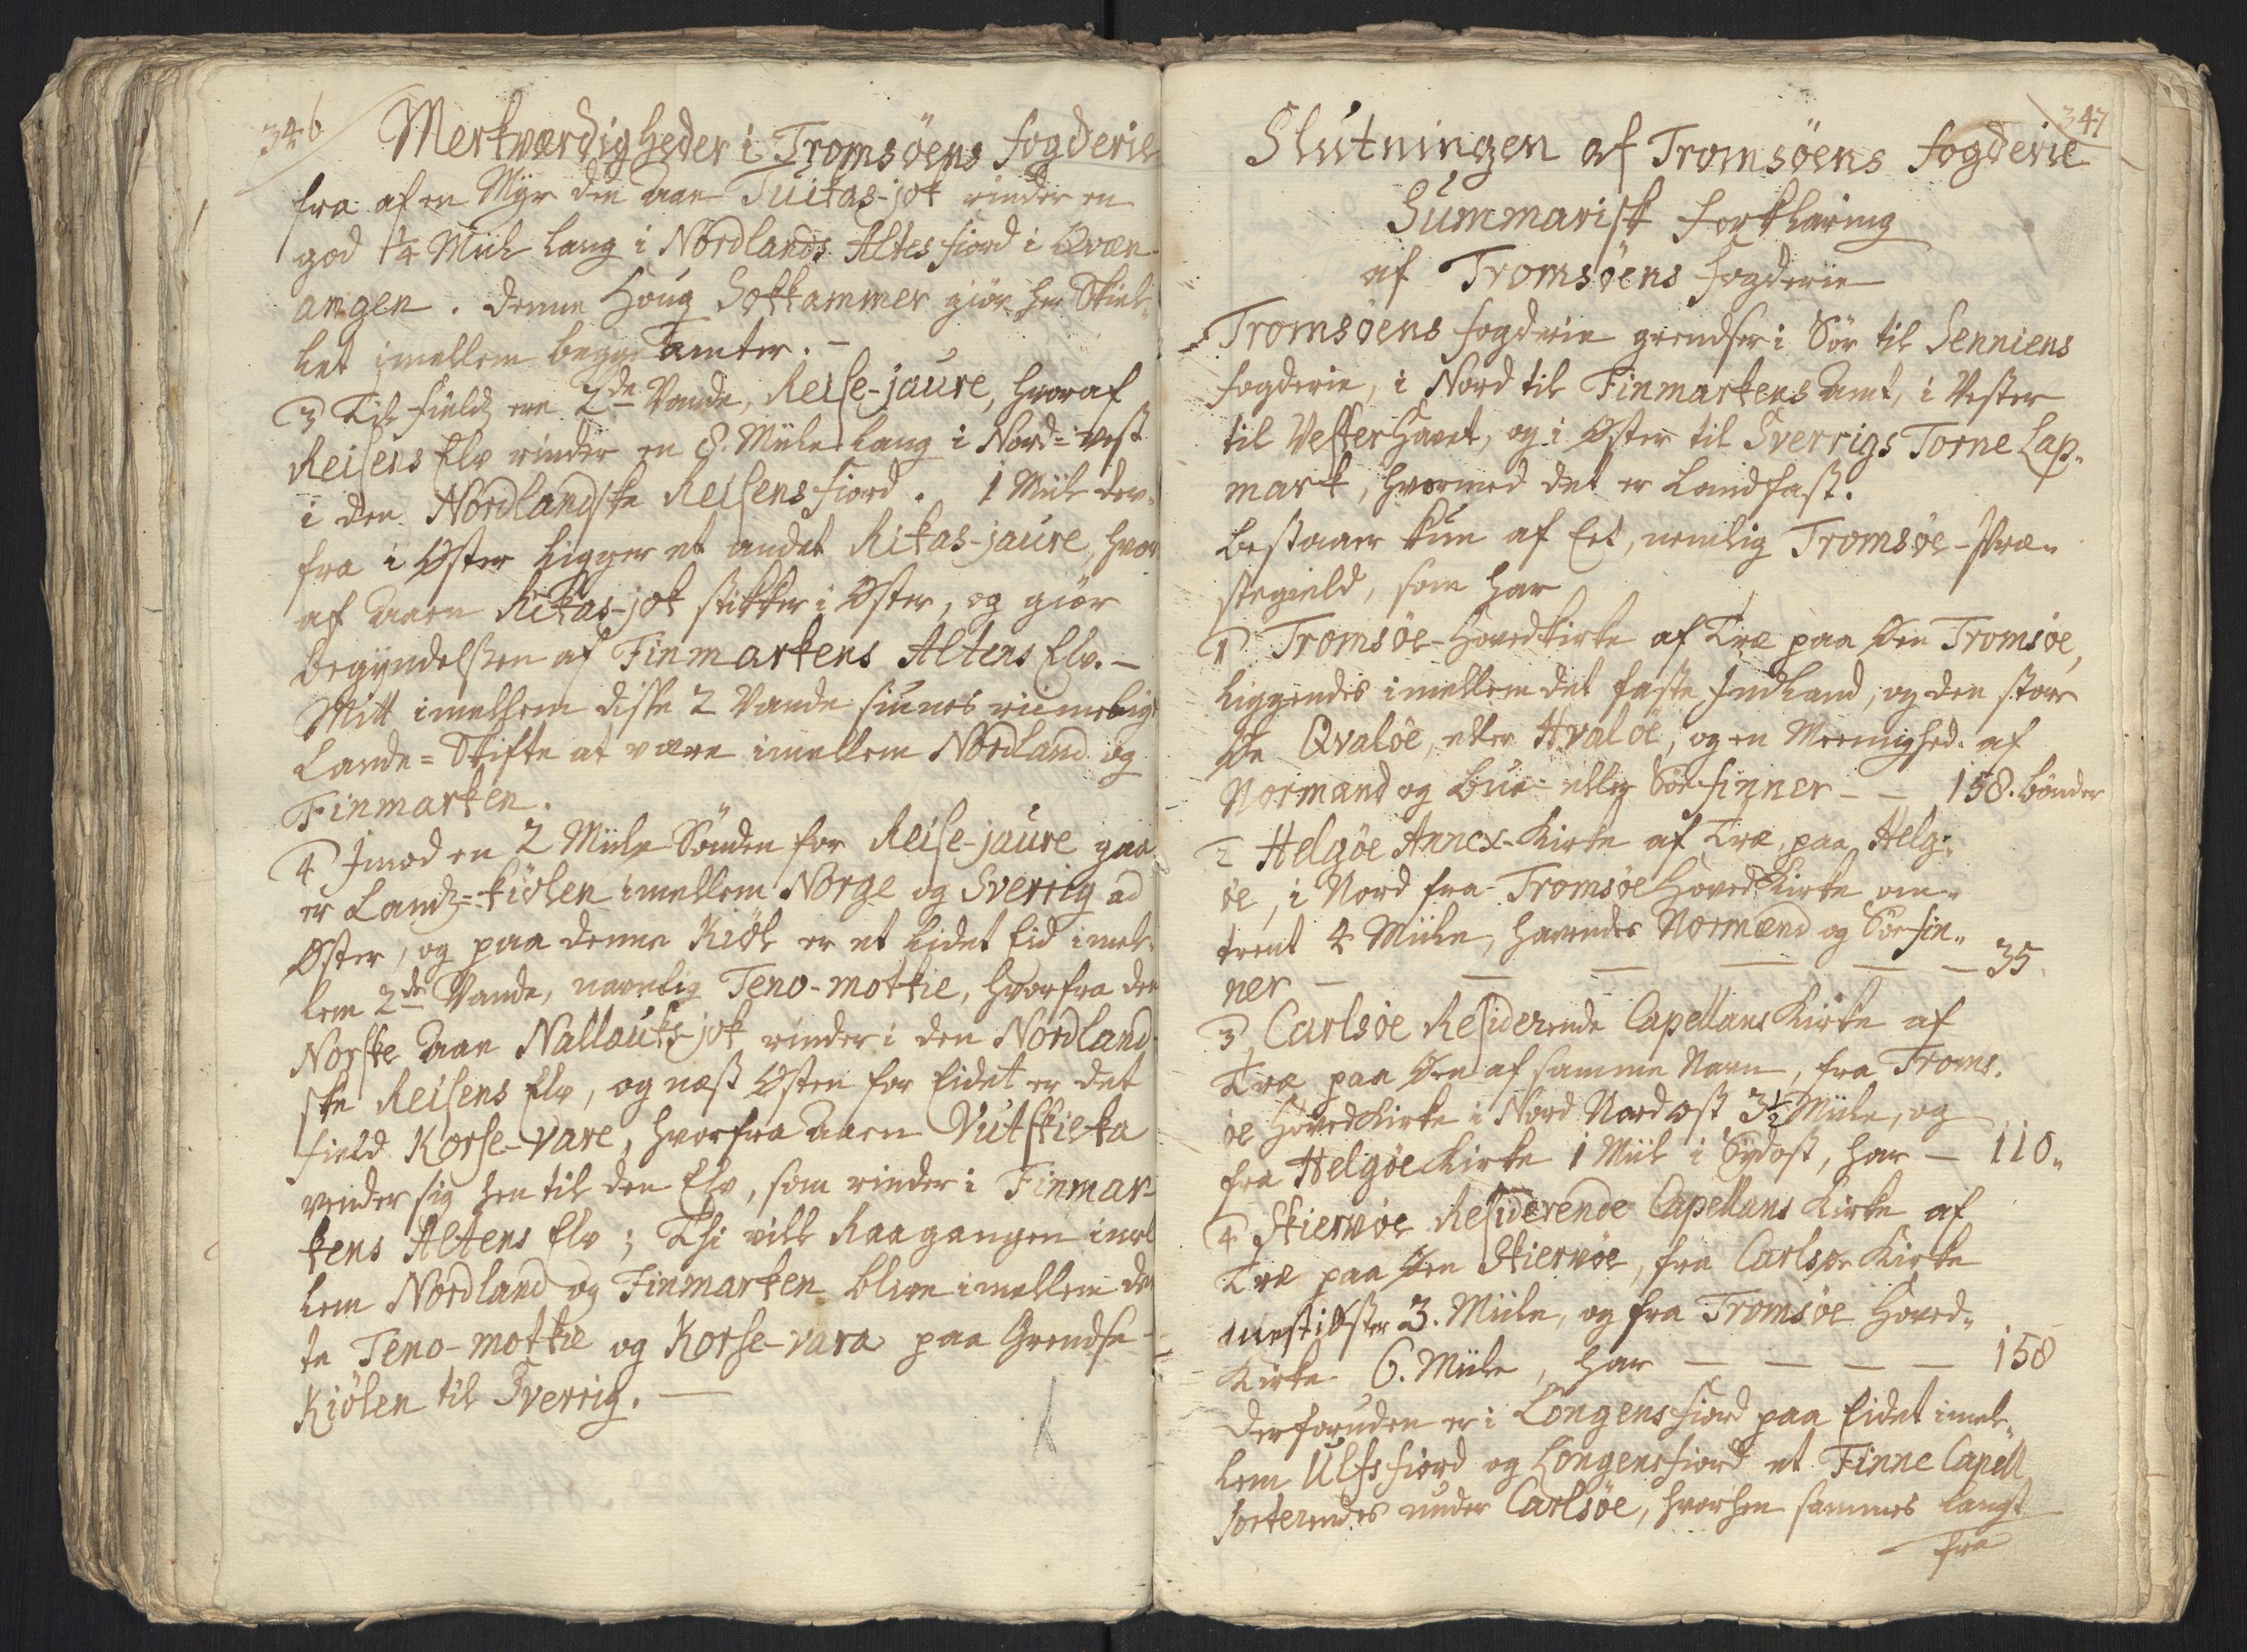 346
Merkværdigheder i Tromsöens fogderie
fra af en Myr din Aae Tuikas-jok rinder en
god 1/4 Miil lang i Nordlands Altes fiord i Qvæn-
angen. denne Houg Sokkammer giör her Skiel-
let imellem begge Amter. —
3 Til fields ere 2de Vande, Reise-jaure, hvoraf
Reisens Elv rinder en 8. Miile lang i Nord-vest
i den Nordlandske Reisens fiord. 1 Miil der-
fra i Öster ligger et andet Rikas-jaure, hvor
af Aaen Rikas-jok stikker i Öster, og giör
begyndelsen af Finmarkens Altens Elv. —
Mitt imellem disse 2 Vande siunes riimelig
Lande-Skifte at være imellem Nordland og
Finmarken.
4 Imod en 2 Miile Sönden for Reise-jaure gaa
er Lands-kiölen imellem Norge og Sverrig ad
Öster, og paa denne Kiöl er et lidet Eid imel-
lem 2de Vande, navnlig Teno-mottie, hvorfra den
Norske Aae Nallouks-jok rinder i den Nordland
ske Reisens Elv, og næst Östen for Eidet er det
field Korse-vare, hvorfra Aaen Vutskieka
vender sig hen til den Elv, som rinder i Finmar-
kens Altens Elv; Thi vill Raagangen imel
lem Nordland og Finmarken blive imellem det
te Teno-mottie og Korse-vara paa Grendse-
Kiölen til Sverrig. —
347
Slutningen af Tromsöens fogderie
Summarisk forklaring
af Tromsöens fogderie
Tromsöens fogderie grendser i Sör til Senniens
fogderie, i Nord til Finmarkens Amt, i Vester
til Vesterhavet, og i Öster til Sverrigs Torne Lap-
mark, hvormed det er Landfast.
bestaaer kun af Eet, nemlig Tromsöe-Præ-
stegield, som har
1 Tromsöe-Hovedkirke af Træ paa Öen Tromsöe,
liggendes imellem det faste Indland, og den store
Öe Qvalöe, eller Hvalöe, og en Meenighed af
Normænd og bue- eller Söe-finner — — 158. bönder
2 Helgöe Annex-Kirke af Træ, paa Helg-
öe, i Nord fra Tromsöe Hovedkirke om-
trent 4 Miile, havendes Normænd og Söefin-
ner — — — — — — 35
3 Carlsöe Residerende Capellans Kirke af
Træ paa Öen af samme Navn, fra Troms-
öe Hovedkirke i Nord Nordost 3 1/2 Miile, og
fra Helgöe Kirke 1 Miil i Sydost, har — 110.
4 Skiervöe Residerende Capellans Kirke af
Træ paa Öen Skiervöe, fra Carlsöe Kirke
mest i Öster 3. Miile, og fra Tromsöe Hoved-
Kirke 6. Miile, har — — — — 158
Desforuden er i Löngens fiord paa Eidet imel-
lem Ulfs fiord og Löngensfiord et Finne Capell
sorterendes under Carlsöe, hvorhen sammes langt
fra